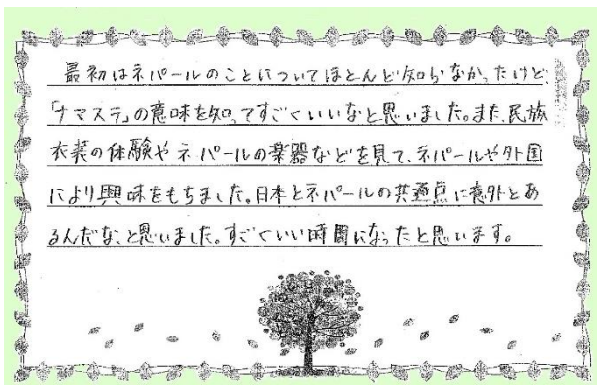 最初はネパールのことについてほとんど知らなかったけど、
「ナマステ」の意味を知ってすごくいいなと思いました。また、民族
衣装の体験やネパールの楽器などを見て、ネパールや外国
により興味をもちました。日本とネパールの共通点に意外とあ
るんだな、と思いました。すごくいい時間になったと思います。